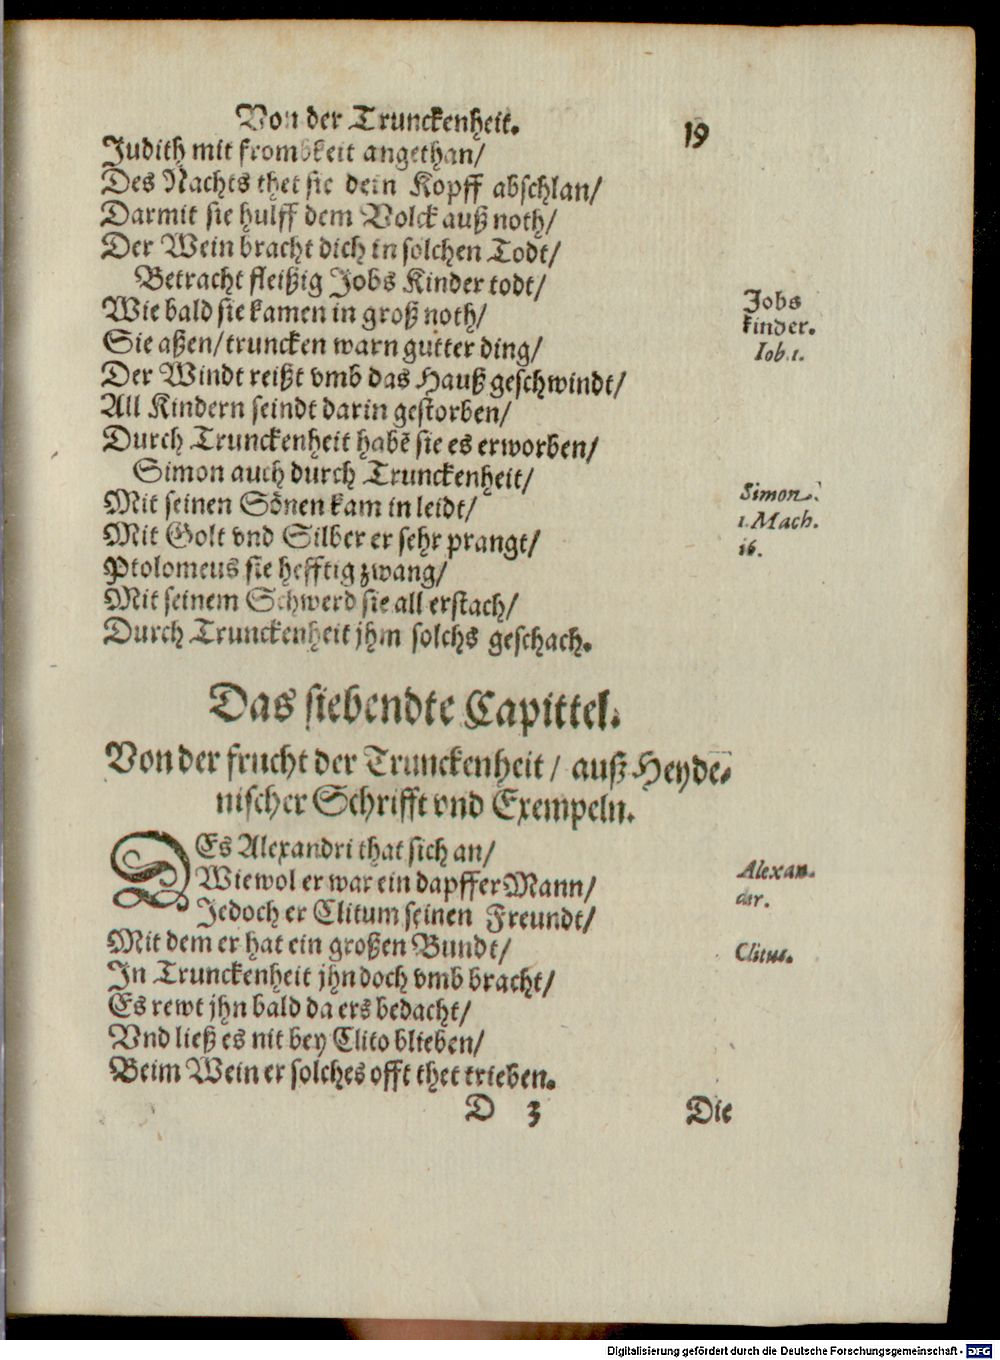 Von der Trunckenheit. 19
Judith mit frombkeit angethan/
Des Nachts thet sie dein Kopff abschlan/
Darmit sie hulff dem Volck auß noth/
Der Wein bracht dich in solchen Todt/
Betracht fleißig Jobs Kinder todt/
Wie bald sie kamen in groß noth/
Jobs
kinder.
Iob.1.
Sie aßen/truncken warn gutter ding/
Der Windt reißt vmb das Hauß geschwindt/
All Kindern seindt darin gestorben/
Durch Trunckenheit habē sie es erworben/
Simon auch durch Trunckenheit/
Mit seinen Sönen kam in leidt/
Simon.
1.Mach.
16.
Mit Golt vnd Silber er sehr prangt/
Ptolomeus sie hefftig zwang/
Mit seinem Schwerd sie all erstach/
Durch Trunckenheit jhm solchs geschach.
Das siebendte Capittel.
Von der frucht der Trunckenheit / auß Heyde-
nischer Schrifft vnd Exempeln.
DEs Alexandri that sich an/
Wiewol er war ein dapffer Mann/
Alexan-
der.
Jedoch er Clitum seinen Freundt/
Mit dem er hat ein großen Bundt/
Clitus.
In Trunckenheit jhn doch vmb bracht/
Es rewt jhn bald da ers bedacht/
Vnd ließ es nit bey Clito blieben/
Beim Wein er solches offt thet trieben.
D 3 Die
Digitalisierung gefördert durch die Deutsche Forschungsgemeinschaft - DFG